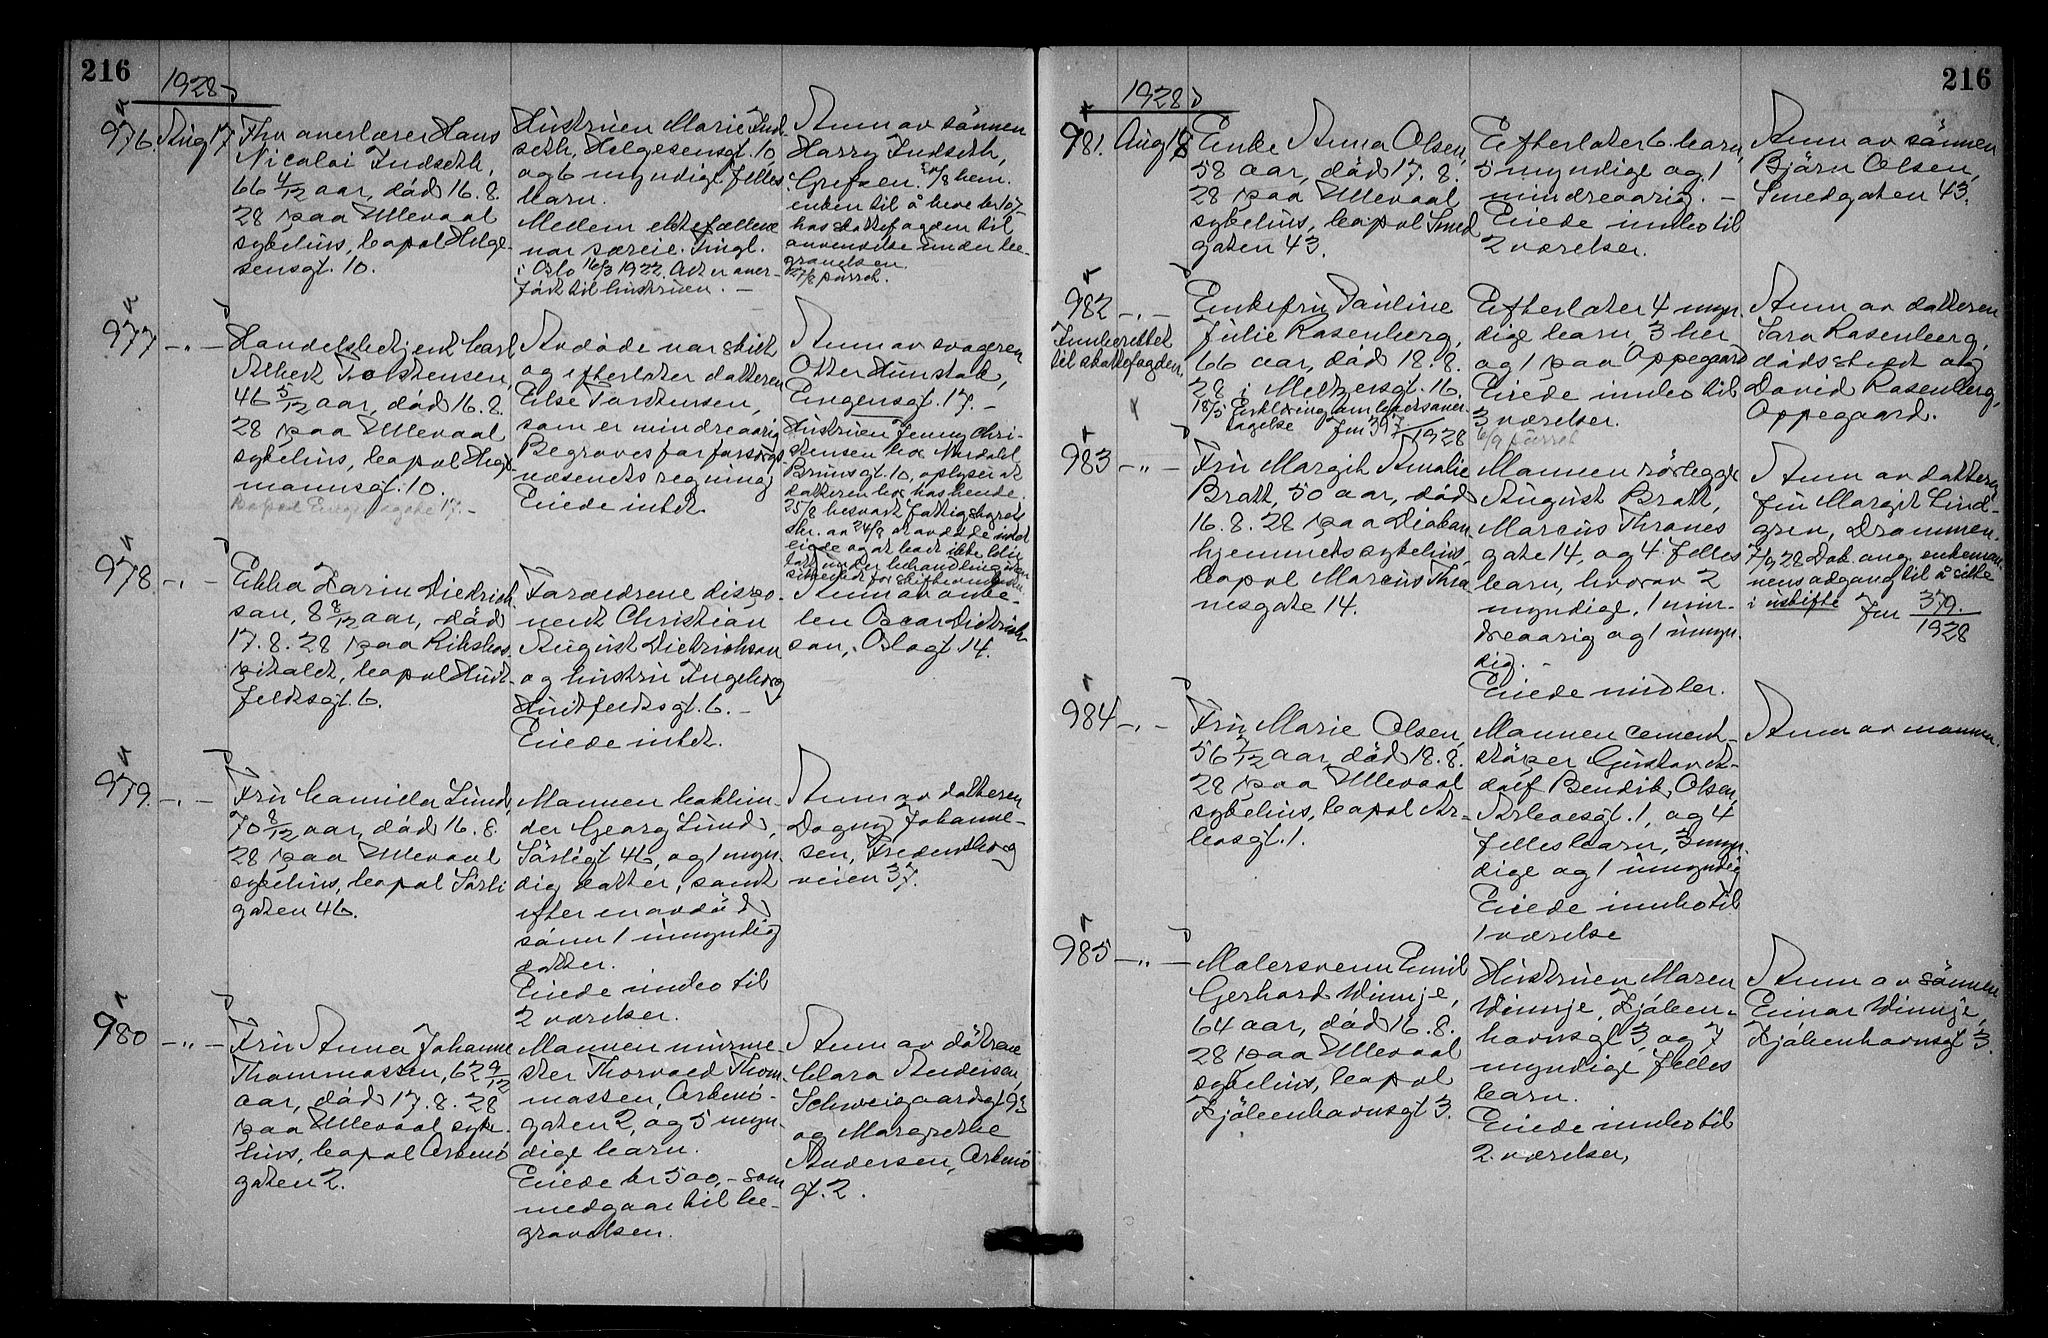 216
1928
976. Aug 17
Fhv overlærer Hans
Nicolai Indseth,
66 4/12 aar, död 16.8.
28 paa Ullevaal
sykehus, bopæl Helge-
sensgt. 10.
Hustruen Marie Ind-
seth, Helgesensgt. 10,
og 6 myndige felles
barn.
Mellem ektefællene
var særeie. Tingl.
i Oslo 16/3 1922. Alt er over-
fört til hustruen. -
Anm av sönnen
Harry Indseth,
Grefsen. 20/8 bem.
enken til å heve kr
hos skattefogden til
anvendelse under be-
gravelsen.
27/8 purret.
977 -"-
Handelsbetjent Carl
Albert Torstensen,
46 5/12 aar, död 16.8.
28 paa Ullevaal
sykehus, bopæl Hegd
mannsgt. 10.
Bopæl Engensgate 17. -
Avdöde var skilt
og efterlater datteren
Else Torstensen,
som er mindreaarig
Begraves for forsorgs
væsenets regning
Eiede intet
Anm av svogeren
Otter Hunstad,
Engensgt. 17. -
Hustruen Jenny Chri-
stensen bor Nordahl
Brunsgt. 10, oplyser at
datteren bor hos hende.
25/8 besvart fattigstyret
skr. av 24/8 at avdöde intet
eiede og at boet ikke blir
tatt under behandling uten
sikkerhet for skifteomk.
978 -"-
Ebba Karin Diedrich
son, 8 8/12 aar, död
17.8.28 paa Rikshos-
pitalet, bopæl Huit-
feldtsgt. 6.
Forældrene dispo-
nent Christian
August Diedrichson
og hustru Ingeborg
Huitfeldtsgt. 6. -
Eiede intet.
Anm av onke-
len Oscar Didrich
son, Oslogt 14.
979. -"-
Fru Camilla Lund,
70 8/12 aar, död 16.8.
28 paa Ullevaal
sykehus, bopæl Sörli
gaten 46.
Mannen bokbin-
der Georg Lund,
Sörligt 46, og 1 myn-
dig datter, samt
efter en avdöd
sönn 1 umyndig
datter.
Eiede innbo til
2 værelser.
Anm av datteren
Dagny Johanne-
sen, Fredensborg
veien 37.
980 -"-
Fru Anna Johanne
Thommassen, 62 9/12
aar, död 17.8.28
paa Ullevaal syke-
hus, bopæl Arbeid
gaten 2.
Mannen murme-
ster Thorvald Thom
massen, Arbeid-
gaten 2, og 5 myn-
dige barn.
Eiede kr 500,- som
medgaar til be-
gravelsen.
Anm av dötrene
Clara Andersen,
Schweigaardsgt 93
og Margrethe
Andersen, Arbeid
gt. 2.
216
1928
981. Aug 18
Enke Anna Olsen,
58 aar, död 17.8.
28 paa Ullevaal
sykehus, bopæl Smed
gaten 43.
Efterlater 6 barn,
5 myndige og 1
mindreaarig. -
Eiede innbo til
2 værelser.
Anm av sönnen
Björn Olsen,
Smedgaten 43.
982 -"-
Innberettet
til skattefogden.
Enkefru Pauline
Julie Rosenberg,
66 aar, död 18.8.
28 i Meltzersgt. 16.
18/5 Erklæring om bobesover-
tagelse Jnr 397/1928
Efterlater 4 myn
dige barn, 3 her
og 1 paa Oppegaard
Eiede innbo til
3 værelser.
6/9 purret
Anm av datteren
Sara Rosenberg,
dödsstedet og
David Rosenberg,
Oppegaard.
983 -"-
Fru Margit Amalie
Bratt, 50 aar, död
16.8.28 paa Diakon
hjemmets sykehus,
bopæl Marcus Thra
nesgate 14.
Mannen rörlegger
August Bratt,
Marcus Thranes
gate 14, og 4 felles
barn, hvorav 2
myndige, 1 min-
dreaarig og 1 umyn-
dig. -
Eiede midler.
Anm av datteren
fru Margit Lind-
gren, Drammen.
7/9 28 Dok. ang. enkeman-
nens adgang til å sitte
i uskifte Jnr 379./1928
984 -"-
Fru Marie Olsen,
56 7/12 aar, död 18.8.
28 paa Ullevaal
sykehus, bopæl Ar-
bosgt. 1.
Mannen cement-
stöper Gustav A-
dolf Bendik Olsen,
Arboesgt. 1, og 4
felles barn, 3 myn-
dige og 1 umyndig
Eiede innbo til
1 værelse
Anm av mannen.
985 -"-
Malersvenn Emil
Gerhard Winnje,
64 aar, död 16.8.
28 paa Ullevaal
sykehus, bopæl
Kjöbenhavnsgt 3.
Hustruen Maren
Winnje, Kjöben-
havnsgt 3, og 7
myndige felles
barn.
Eiede innbo til
2 værelser,
Anm av sönnen
Einar Winnje,
Kjöbenhavnsgt 3.